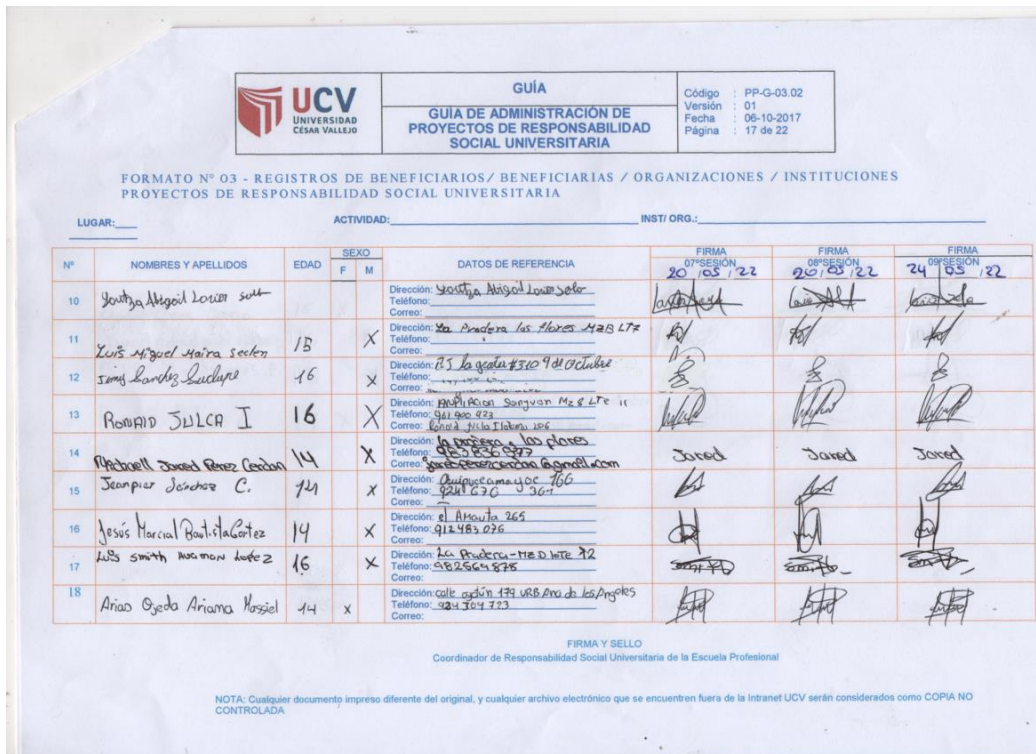 UCV
UNIVERSIDAD
CÉSAR VALLEJO
GUÍA
GUÍA DE ADMINISTRACIÓN DE
PROYECTOS DE RESPONSABILIDAD
SOCIAL UNIVERSITARIA
Código : PP-G-03.02
Versión : 01
Fecha : 06-10-2017
Página : 17 de 22
FORMATO N° 03 - REGISTROS DE BENEFICIARIOS/ BENEFICIARIAS / ORGANIZACIONES / INSTITUCIONES
PROYECTOS DE RESPONSABILIDAD SOCIAL UNIVERSITARIA
LUGAR: ACTIVIDAD: INST/ ORG.:
N° NOMBRES Y APELLIDOS EDAD SEXO F M DATOS DE REFERENCIA FIRMA 07°SESIÓN FIRMA 08°SESIÓN FIRMA 09°SESIÓN
20 / 05 / 22 20 / 05 / 22 24 / 05 / 22
10 Dirección:
Teléfono:
Correo:
11 Luis Miguel Maira X Dirección: La Pradera las flores MzB LT7
Teléfono:
Correo:
12 Sanchez 16 X Dirección: #310 9 de Octubre
Teléfono:
Correo:
13 RONALD JULCA I 16 X Dirección: Ampliacion Mz 8 LTe 11
Teléfono: 961 900 423
Correo:
14 Jared Perez Cerdan 14 X Dirección: la pradera - las flores
Teléfono: 983 836 977
Correo: @gmail.com
Jared Jared Jared
15 Jeanpier Sánchez C. 14 X Dirección: 166
Teléfono:
Correo:
16 Jesús Marcial Bautista Cortez 14 X Dirección: el Amauta 265
Teléfono: 912483076
Correo:
17 Luis smith Huaman Lopez 16 X Dirección: La Pradera-MzD loTe 12
Teléfono: 982569878
Correo:
18 Arias Ojeda Ariana Massiel 14 x Dirección: calle 179 URB Ana de los Angeles
Teléfono: 924 309 723
Correo:
FIRMA Y SELLO
Coordinador de Responsabilidad Social Universitaria de la Escuela Profesional
NOTA: Cualquier documento impreso diferente del original, y cualquier archivo electrónico que se encuentren fuera de la Intranet UCV serán considerados como COPIA NO
CONTROLADA